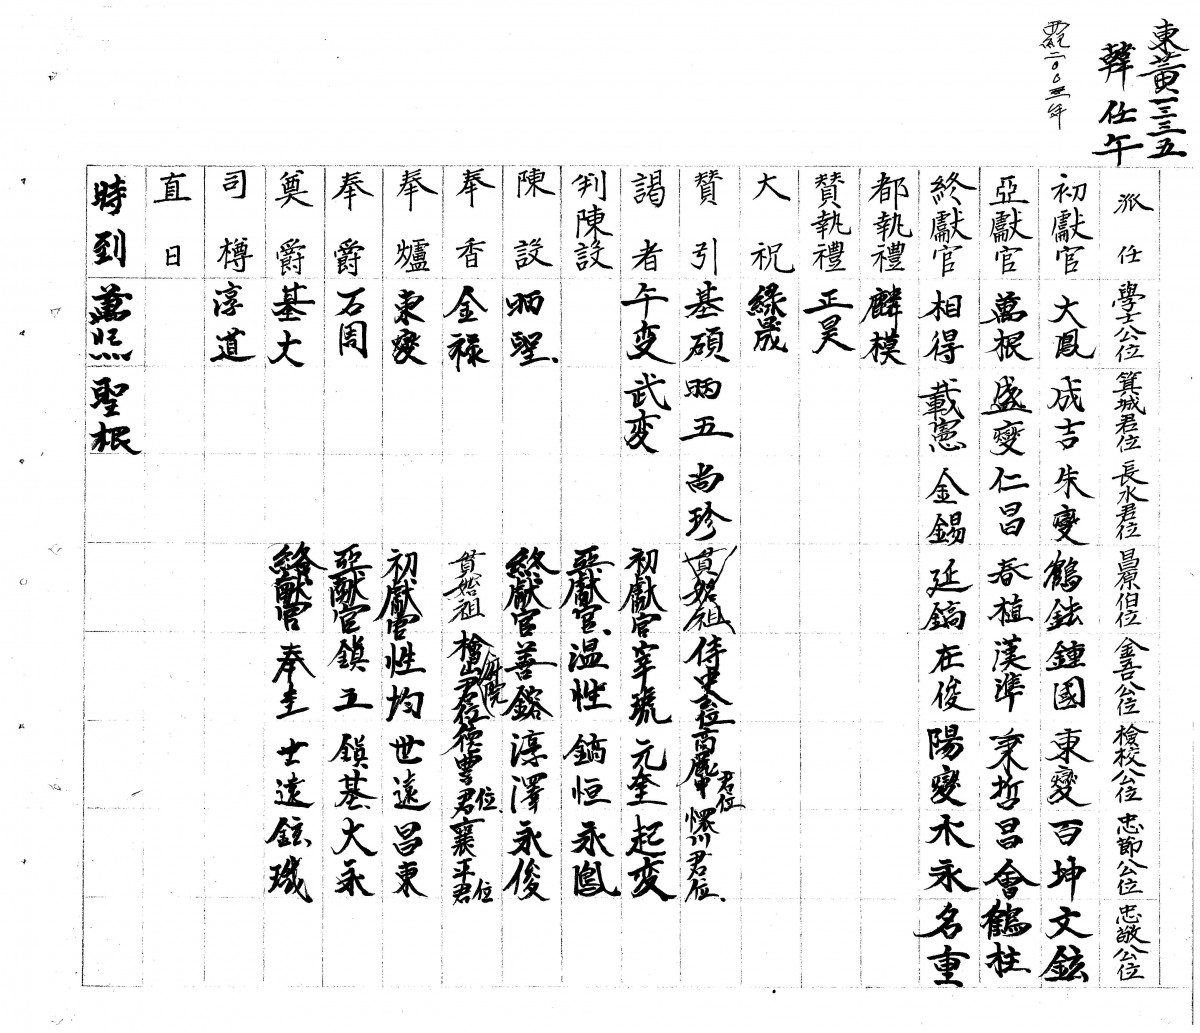 東黃一三三五
韓任午
西紀二00三年
派任 學士公位 箕城君位 長水君位 昌原伯位 金吾公位 檢校公位 忠節公位 忠敬公位
初獻官 大鳳 成吉 朱變 鶴鉉 鍾國 東變 百坤 文鉉
亞獻官 萬根 盛變 仁昌 春植 漢準 秉哲 昌會 鶴柱
終獻官 相得 載憲 金錫 延鎬 在俊 陽變 木永 名重
都執禮 麟模
贊執禮 正昊
大祝 緑晟
贊引 基碩 昞五 尚珍 貫始祖 侍史公位 高 君位 懷川君位
謁者 午変 武変 初獻官 宰琥 元奎 起変
判陳設 亞獻官 温性 鎬恒 永鳳
陳設 昞聖 終獻官 善鎔 淳澤 永俊
奉香 金祿 貫始祖 檜山君位 府院 德豊君位 襄平君位
奉爐 東變 初獻官 性均 世遠 昌東
奉爵 石周 亞獻官 鎭工 鎭基 大永
奠爵 基大 終獻官 奉圭 士遠 鉉璣
司樽 淳道
直日
時到 萬熙 聖根